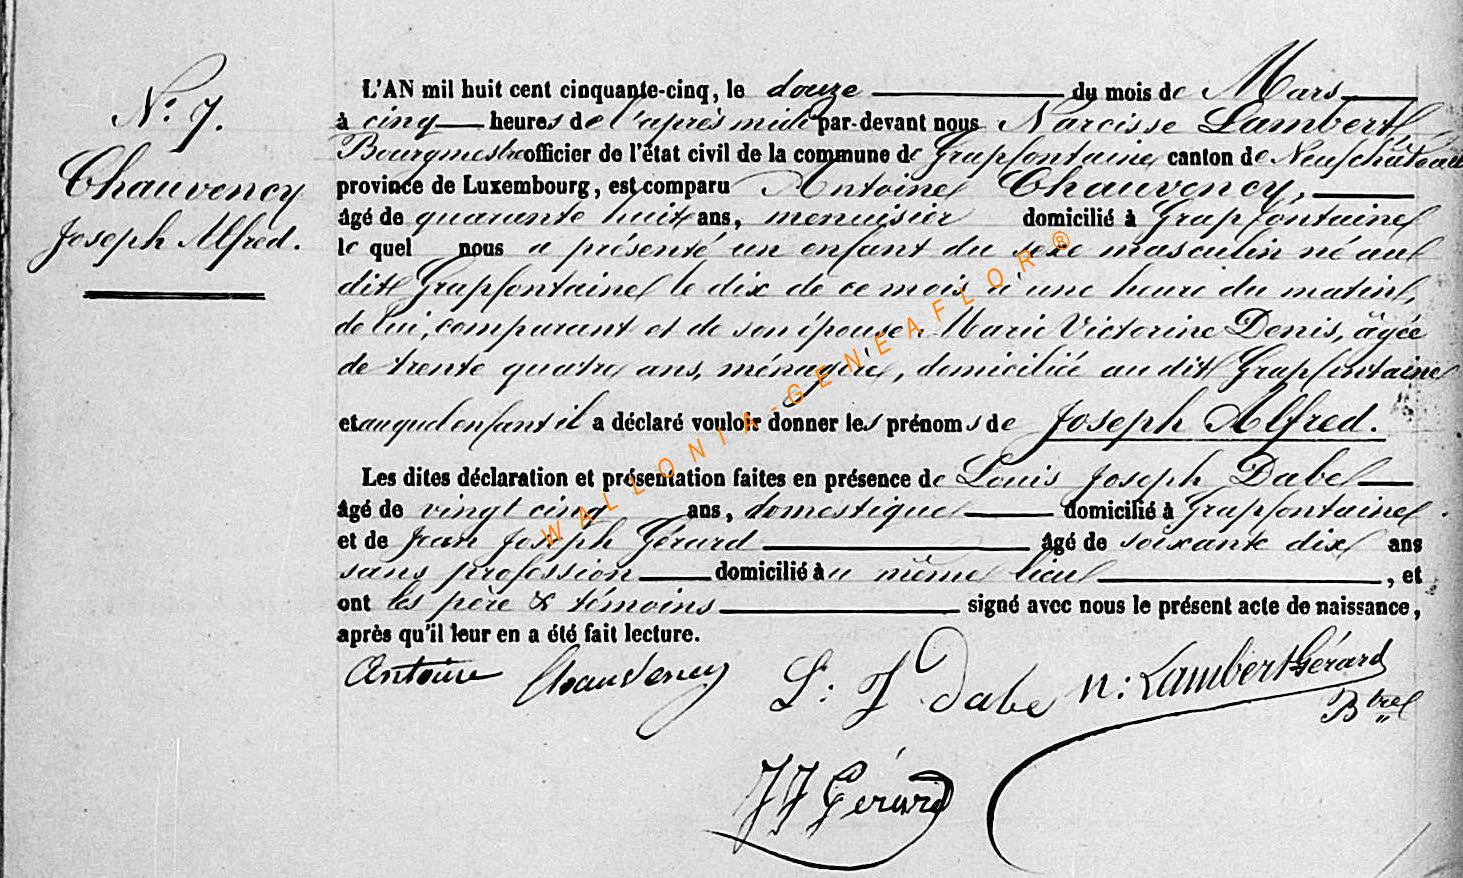 N.° 7.
Chauvency
Joseph Alfred.
L'AN mil huit cent cinquante-cinq, le douze du mois de Mars
à cinq heures de l'après midi par-devant nous Narcisse Lambert
Bourgmestre officier de l'état civil de la commune de Grapfontaine canton de Neufchâteau
province de Luxembourg, est comparu Antoine Chauvency,
âgé de quarante huit ans, menuisier domicilié à Grapfontaine
le quel nous a présenté un enfant du sexe masculin né au
dit Grapfontaine le dix de ce mois à une heure du matin,
de lui, comparant et de son épouse Marie Victorine Denis, âgée
de trente quatre ans, ménagère, domiciliée au dit Grapfontaine
et auquel enfant il a déclaré vouloir donner les prénoms de Joseph Alfred.
Les dites déclaration et présentation faites en présence de Louis Joseph Dabe
âgé de vingt cinq ans, domestique domicilié à Grapfontaine
et de Jean Joseph Gérard âgé de soixante dix ans
sans profession domicilié au même lieu, et
ont les père & témoins signé avec nous le présent acte de naissance,
après qu'il leur en a été fait lecture.
Antoine Chauvency L: J Dabe N: Lambert Gérard
B trel
JJ Gérard
WALLONIA-GENEAFLOR ®